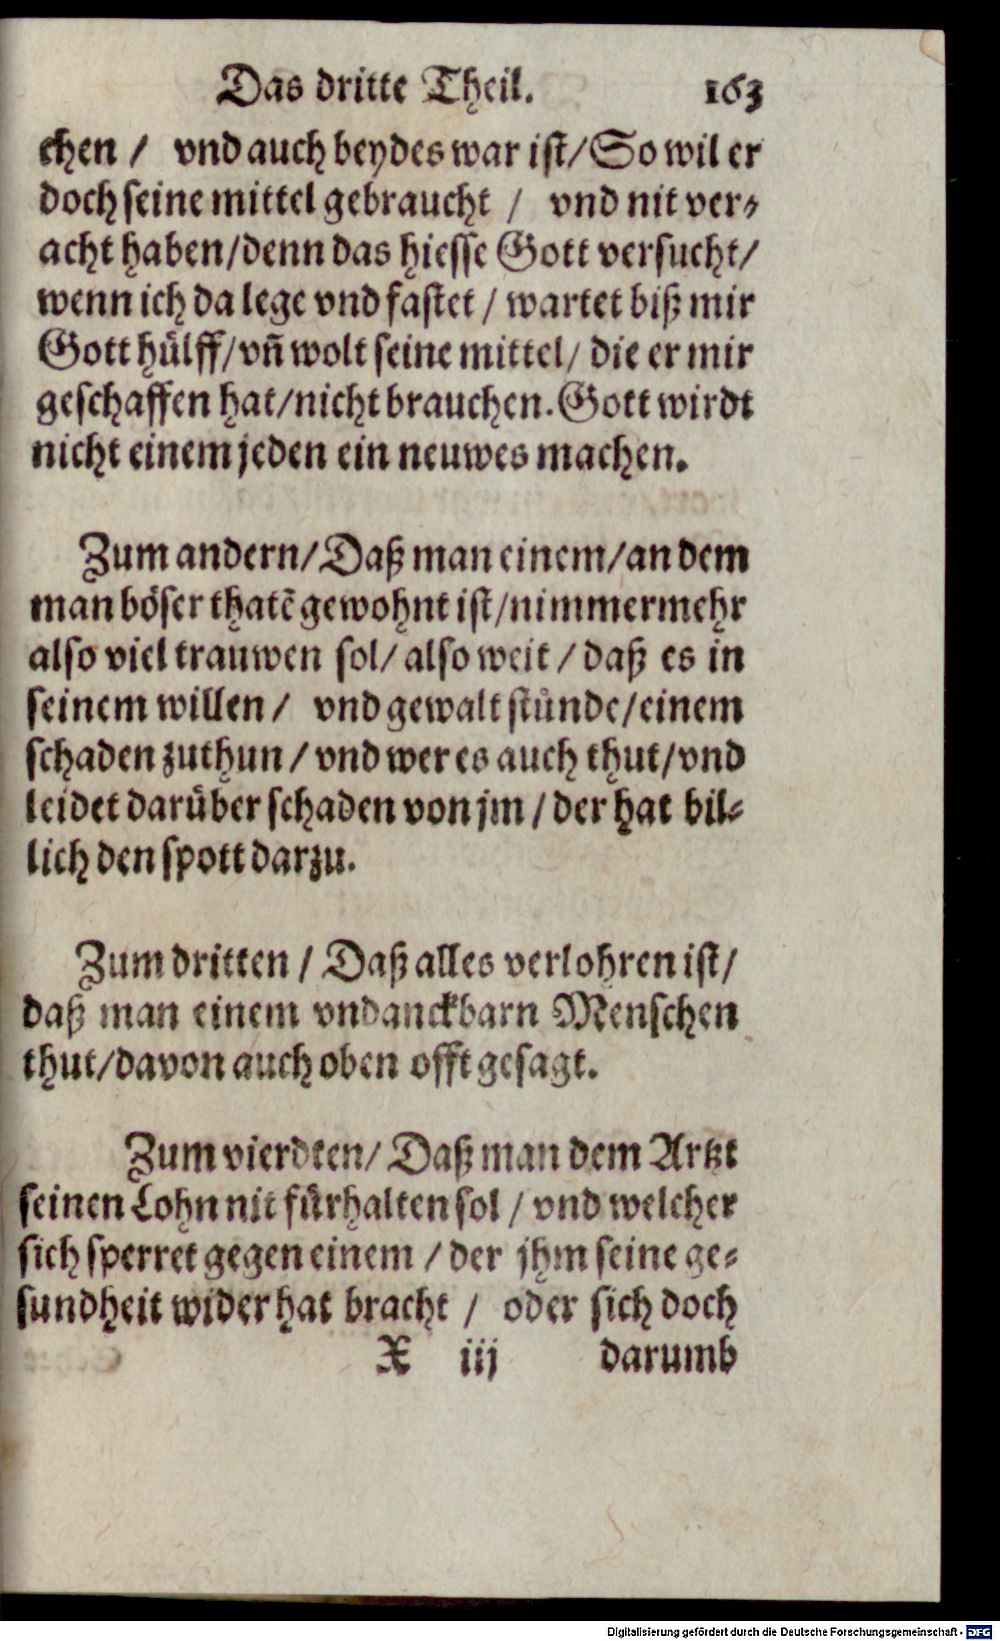 Das dritte Theil. 163
chen / vnd auch beydes war ist/ So wil er
doch seine mittel gebraucht / vnd nit ver-
acht haben/denn das hiesse Gott versucht/
wenn ich da lege vnd fastet / wartet biß mir
Gott huͤlff/vñ wolt seine mittel/ die er mir
geschaffen hat/nicht brauchen. Gott wirdt
nicht einem jeden ein neuwes machen.
Zum andern/ Daß man einem/an dem
man boͤser thatẽ gewohnt ist/nimmermehr
also viel trauwen sol/ also weit / daß es in
seinem willen / vnd gewalt stuͤnde/einem
schaden zuthun / vnd wer es auch thut/vnd
leidet daruͤber schaden von jm / der hat bil-
lich den spott darzu.
Zum dritten / Daß alles verlohren ist/
daß man einem vndanckbarn Menschen
thut/davon auch oben offt gesagt.
Zum vierdten/ Daß man dem Artzt
seinen Lohn nit fuͤrhalten sol / vnd welcher
sich sperret gegen einem / der jhm seine ge-
sundheit wider hat bracht / oder sich doch
X iij darumb
Digitalisierung gefördert durch die Deutsche Forschungsgemeinschaft - DFG